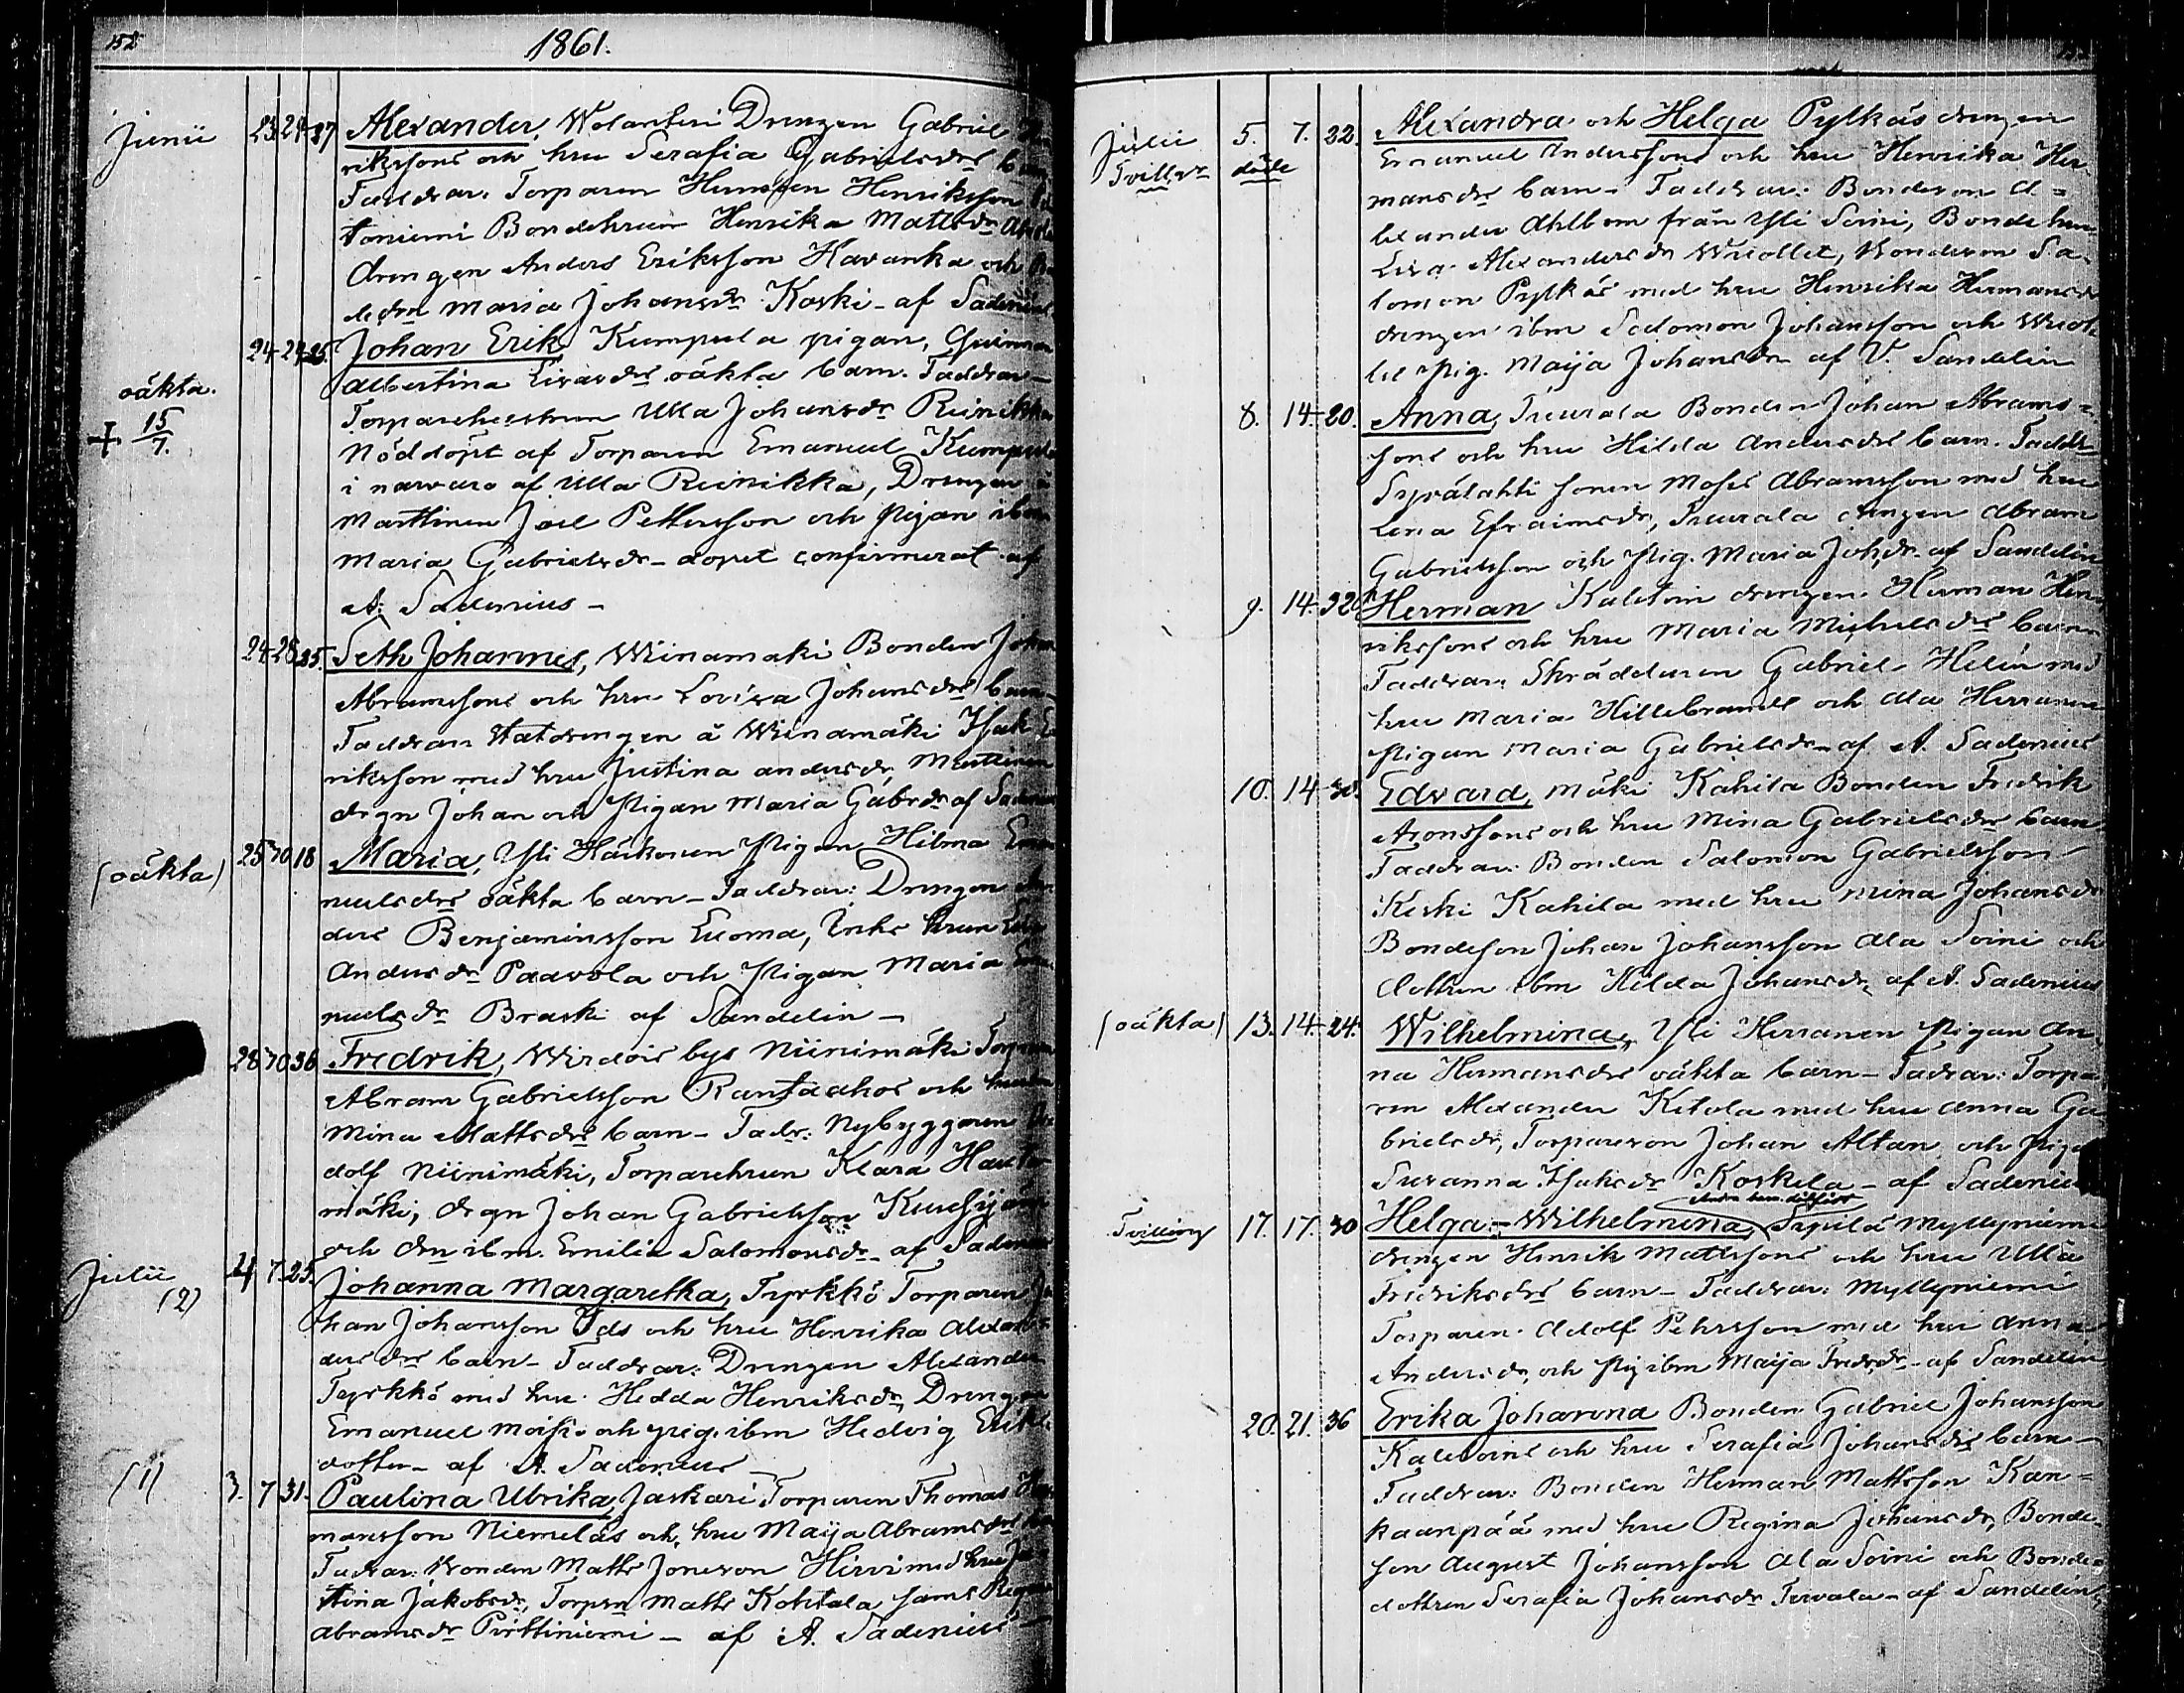 152
1861.
Junii 23 24 37 Alexander, Wolanteri Drengen Gabriel
rikssons och hru Serafia Gabrielsdrs
Faddrar. Torparen Herman Henriksson
toniemi Bondehrun Henrika Mattsdr
drengen Anders Eriksson Havanka och
Maria Johansdr Koski - af Sadenius
24 29 25. Johan Erik Kumpula pigan, Qvinnan
oäkta. Albertina Eivasdrs oäkta barn. Faddrar -
Torparehustrun Ulla Johansdr Reinikka
+ 15/7. Nöddöpt af Torparen Emanuel Kumpula
i närvaro af Ulla Reinikka, Drengen
Marttinen Joel Pettersson och Pigan ibm
Maria Gabrielsdr - dopet confirmerat af
A: Sadenius -
24 28 35. Seth Johannes, Wiinamaki Bonden
Abramssons och hru Lovisa Johansdrs barn -
Faddrar: Statdrengen å Wiinamäki Isak
riksson med hru Justina Andersdr, Marttinen
drgn Johan och Pigan Maria Gabrdr af
(oäkta) 25 30 18 Maria, Yli Häkonen Pigan Hilma
nuelsdrs oäkta barn - Faddrar: Drengen
ders Benjaminsson Euoma, Enke hrun
Andersdr Paavola och Pigan Maria
nuelsdr Braski af Sandelin -
28 30 36 Fredrik, Wirdois bys Niinimäki
Abram Gabrielsson Rantaahos och
Mina Mattsdrs barn - Fadr: Nybyggaren
dolf Niinimäki, Torparehrun Klara
mäki, drgn Johan Gabrielsson
och drn ibm. Emilia Salomonsdr - af Sadenius
Julii (2) 4 7. 25. Johanna Margaretha, Tyrkkö Torparen
han Johansson Ids och hru Henrika
dersdrs barn - Faddrar: Drengen Alexander
Tyrkkö med hru Hedda Henriksdr, Drengen
Emanuel och pig. ibm Hedvig
dotter - af A. Sadenius
(1) 3. 7 31. Paulina Ulrika, Jaskari Torparen Thomas
mansson Niemeläs och hru Maija Abramsdrs
Fadrar: Bonden Matts Jonsson Hirvi med hru
Stina Jakobsdr, Torpn Matts Kohtala samt
Abramsdr Pirttiniemi - af A. Sadenius -
Julii 5. 7. 22. Alexandra och Helga Pylkäs drengen
Tvillgr döde Emanuel Anderssons och hru Henrika Her-
mansdrs barn - Faddrar: Bondeson A-
lexander Ahlbom från Yli Soini, Bonde hru
Lisa Alexandersdr Wuollet, Bondeson Sa-
lomon Pylkäs med hru Henrika Hermansdr
drengen ibm Salomon Johansson och Wuol-
let Pig. Maija Johansdr af V. Sandelin
8. 14. 20. Anna, Teurala Bonden Johan Abrams=
sons och hru Hilda Andersdrs barn. Faddr
sonen Moses Abramsson med hru
Lena Efraimsdr, Teurala drengen Abram
Gabrielsson och Pig. Maria Johdr. af Sandelin
9. 14. 32 Herman Kaletoin drengen Herman Hen-
rikssons och hru Maria Michelsdrs barn
Faddrar: Skräddaren Gabriel Helin med
hru Maria Hillebrandt och Ala Herranen
Pigan Maria Gabrielsdr - af A. Sadenius
10. 14 38. Edvard, Mäki Kahila Bonden Fredrik
Aronssons och hru Mina Gabrielsdrs barn
Faddrar: Bonden Salomon Gabrielsson
Keski Kahila med hru Mina Johansdr
Bondeson Johan Johansson Ala Soini och
dottren ibm Hilda Johansdr, af A. Sadenius
(oäkta) 13. 14. 24. Wilhelmina, Yli Herranen Pigan An-
na Hermansdrs oäkta barn - Fadrar: Torpa-
ren Alexander Ketola med hru Anna Ga-
brielsdr, Torpareson Johan Altan, och Piga
Susanna Isaksdr Koskela - af Sadenius
Andra barn dödfödt
Tvilling 17. 17. 30 Helga - Wilhelmina, Sipilä Myllyniemi
drengen Henrik Mattssons och hru Ulla
Fredriksdrs barn - Faddrar: Myllyniemi
Torparen Adolf Pehrsson med hru Anna
Andersdr, och Pig ibm Maija Fredrdr - af Sandelin
20. 21. 36 Erika Johanna Bonden Gabriel Johansson
Kaletoins och hru Serafia Johansdrs barn -
Faddrar: Bonden Herman Mattsson Kan=
kaanpää med hru Regina Johansdr, Bonde-
son August Johansson Ala Soini och Bonde-
dottren Serafia Johansdr Tervala - af Sandelin